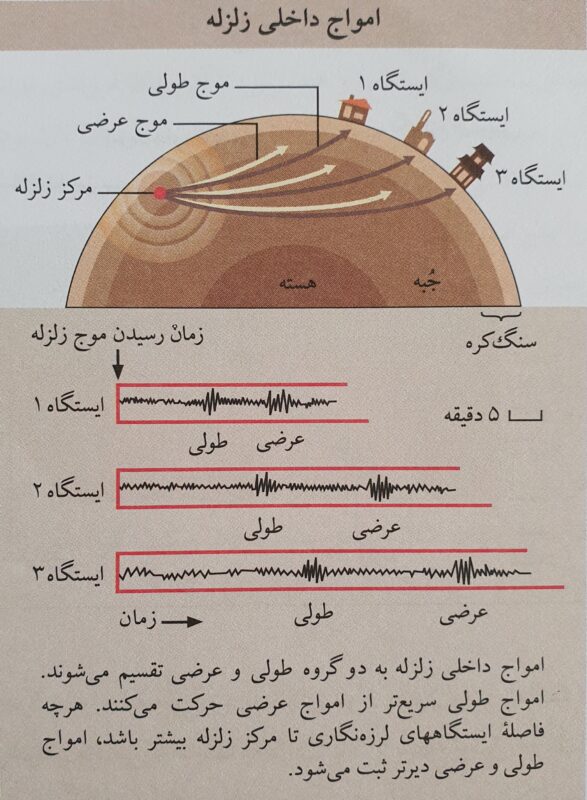 امواج داخلی زلزله
ایستگاه ۱
موج طولی
ایستگاه ۲
موج عرضی
ایستگاه ۳
مرکز زلزله
هسته
جُبه
سنگ‌کره
زمانْ رسیدن موج زلزله
ایستگاه ۱
۵ دقیقه
طولی
عرضی
ایستگاه ۲
طولی
عرضی
ایستگاه ۳
طولی
عرضی
زمان
امواج داخلی زلزله به دو گروه طولی و عرضی تقسیم می‌شوند.
امواج طولی سریع‌تر از امواج عرضی حرکت می‌کنند. هرچه
فاصلهٔ ایستگاههای لرزه‌نگاری تا مرکز زلزله بیشتر باشد، امواج
طولی و عرضی دیرتر ثبت می‌شود.